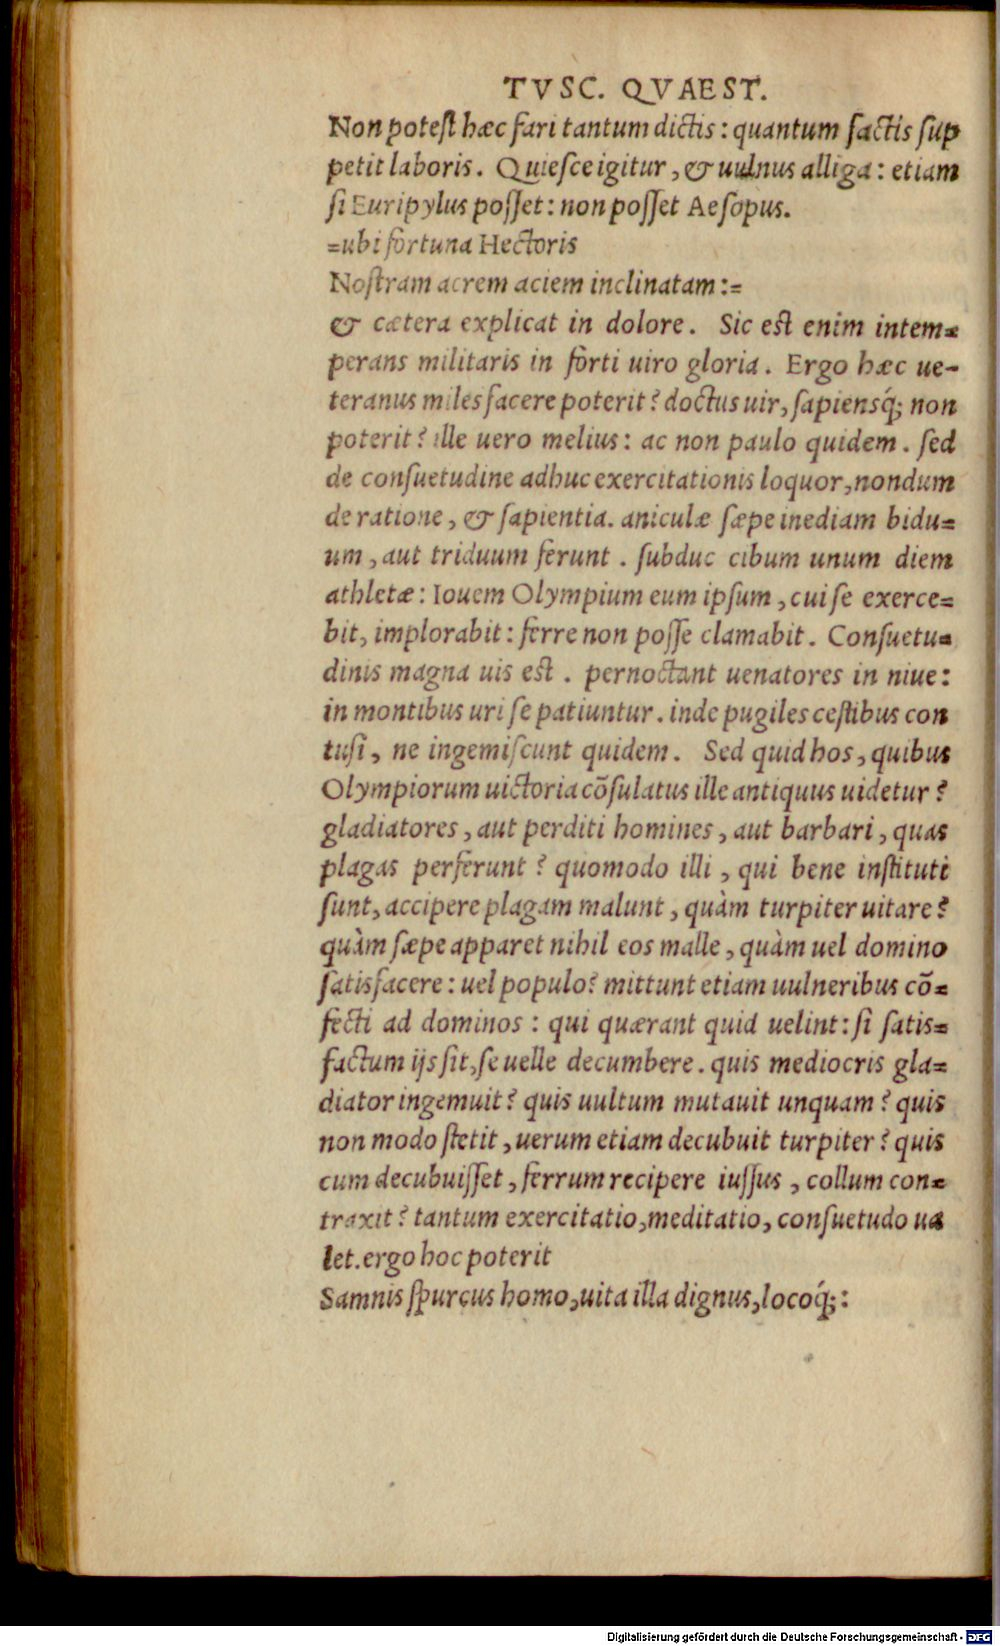 TVSC. QVAEST.
Non potest hæc fari tantum dictis: quantum factis sup
petit laboris. Quiesce igitur, & uulnus alliga: etiam
si Euripylus posset: non posset Aesopus.
=ubi fortuna Hectoris
Nostram acrem aciem inclinatam:=
& cætera explicat in dolore. Sic est enim intem=
perans militaris in forti uiro gloria. Ergo hæc ue-
teranus miles facere poterit? doctus uir, sapiensq́; non
poterit? ille uero melius: ac non paulo quidem. sed
de consuetudine adhuc exercitationis loquor, nondum
de ratione, & sapientia. aniculæ sæpe inediam bidu=
um, aut triduum ferunt. subduc cibum unum diem
athletæ: Iouem Olympium eum ipsum, cui se exerce=
bit, implorabit: ferre non posse clamabit. Consuetu=
dinis magna uis est. pernoctant uenatores in niue:
in montibus uri se patiuntur. inde pugiles cestibus con
tusi, ne ingemiscunt quidem. Sed quid hos, quibus
Olympiorum uictoria cõsulatus ille antiquus uidetur?
gladiatores, aut perditi homines, aut barbari, quas
plagas perferunt? quomodo illi, qui bene instituti
sunt, accipere plagam malunt, quàm turpiter uitare?
quàm sæpe apparet nihil eos malle, quàm uel domino
satisfacere: uel populo? mittunt etiam uulneribus cõ=
fecti ad dominos: qui quærant quid uelint: si satis=
factum ijs sit, se uelle decumbere. quis mediocris gla=
diator ingemuit? quis uultum mutauit unquam? quis
non modo stetit, uerum etiam decubuit turpiter? quis
cum decubuisset, ferrum recipere iussus, collum con=
traxit? tantum exercitatio, meditatio, consuetudo ua
let. ergo hoc poterit
Samnis spurcus homo, uita illa dignus, locoq́;:
Digitalisierung gefördert durch die Deutsche Forschungsgemeinschaft - DFG